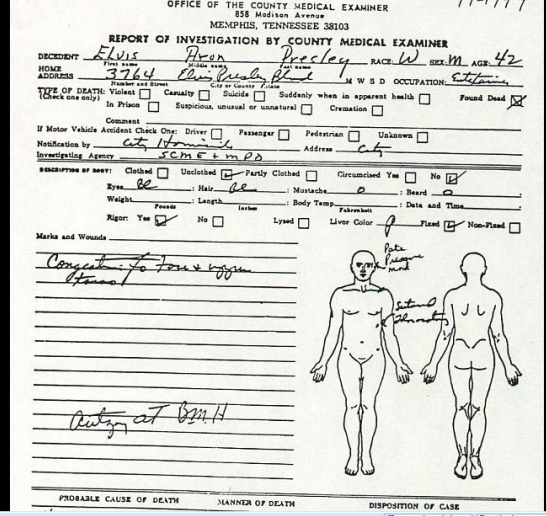 OFFICE OF THE COUNTY MEDICAL EXAMINER
858 Madison Avenue
MEMPHIS, TENNESSEE 38103
REPORT OF INVESTIGATION BY COUNTY MEDICAL EXAMINER
DECEDENT Elvis Aron Presley RACE: W SEX: M AGE: 42
First name Middle name Last name
HOME ADDRESS 3764 Elvis Presley Blvd M W S D OCCUPATION:
Number and Street City or County State
TYPE OF DEATH: Violent Casualty Suicide Suddenly when in apparent health Found Dead
(Check one only) In Prison Suspicious, unusual or unnatural Cremation
Comment
If Motor Vehicle Accident Check One: Driver Passenger Pedestrian Unknown
Notification by City Homicide Address City
Investigating Agency SCME + MPD
DESCRIPTION OF BODY: Clothed Unclothed Partly Clothed Circumcised Yes No
Eyes Bl : Hair Bl : Mustache 0 : Beard 0
Weight : Length : Body Temp. : Date and Time
Pounds Inches Fahrenheit
Rigor: Yes No Lysed Livor Color P Fixed Non-Fixed
Marks and Wounds
Pressure
Congestion to face & upper
torso
Autopsy at BMH
PROBABLE CAUSE OF DEATH MANNER OF DEATH DISPOSITION OF CASE